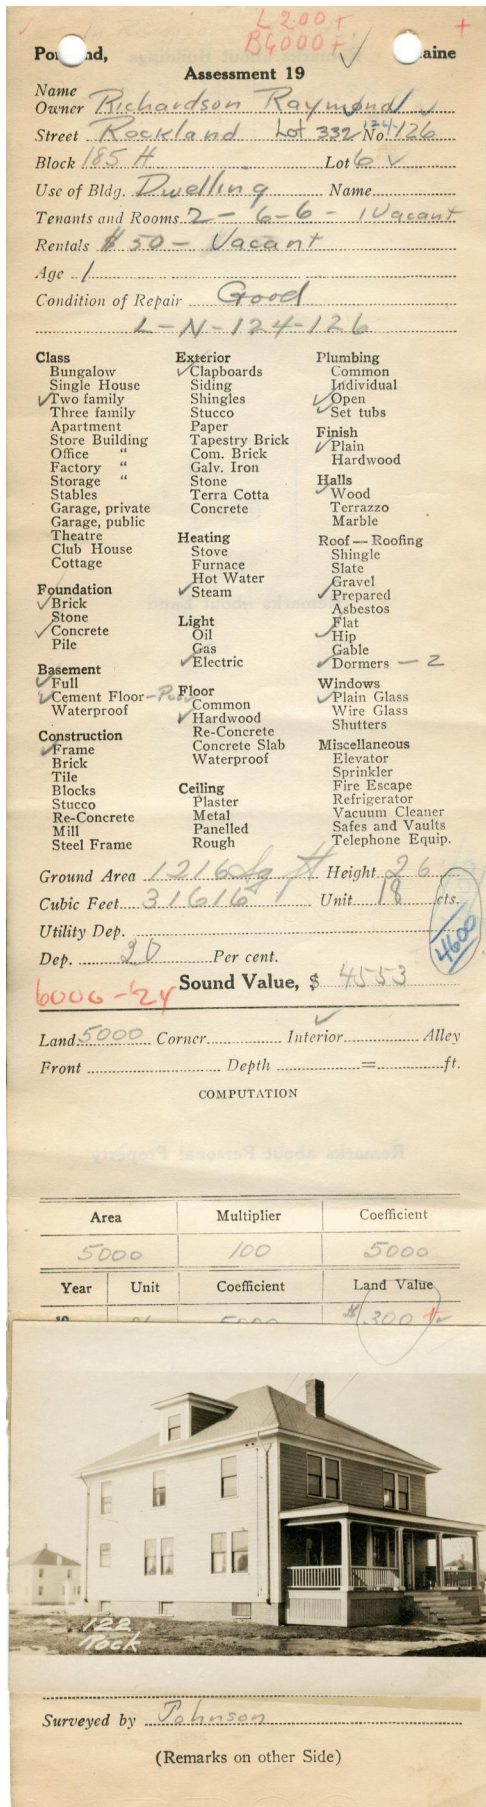 L 200 +
B 4000 +
+
Po nd, aine
Assessment 19
Name
Owner Richardson Raymond
Street Rockland Lot 332 No. 124-126
Block 185 H Lot 6
Use of Bldg. Dwelling Name
Tenants and Rooms 2 - 6-6 - 1 Vacant
Rentals $ 50 - Vacant
Age 1
Condition of Repair Good
L-N-124-126
Class
Bungalow
Single House
Two family
Three family
Apartment
Store Building
Office "
Factory "
Storage "
Stables
Garage, private
Garage, public
Theatre
Club House
Cottage
Foundation
Brick
Stone
Concrete
Pile
Basement
Full
Cement Floor
Waterproof
Construction
Frame
Brick
Tile
Blocks
Stucco
Re-Concrete
Mill
Steel Frame
Exterior
Clapboards
Siding
Shingles
Stucco
Paper
Tapestry Brick
Com. Brick
Galv. Iron
Stone
Terra Cotta
Concrete
Heating
Stove
Furnace
Hot Water
Steam
Light
Oil
Gas
Electric
Floor
Common
Hardwood
Re-Concrete
Concrete Slab
Waterproof
Ceiling
Plaster
Metal
Panelled
Rough
Plumbing
Common
Individual
Open
Set tubs
Finish
Plain
Hardwood
Halls
Wood
Terrazzo
Marble
Roof — Roofing
Shingle
Slate
Gravel
Prepared
Asbestos
Flat
Hip
Gable
Dormers — 2
Windows
Plain Glass
Wire Glass
Shutters
Miscellaneous
Elevator
Sprinkler
Fire Escape
Refrigerator
Vacuum Cleaner
Safes and Vaults
Telephone Equip.
Ground Area 1216 Sq ft Height 26
Cubic Feet 31616 Unit 18 cts.
Utility Dep.
4600
Dep. 20 Per cent.
Sound Value, $ 4553
6000-'24
Land 5000 Corner Interior Alley
Front Depth = ft.
COMPUTATION
Area Multiplier Coefficient
5000 100 5000
Year Unit Coefficient Land Value
19 5000 $ 200 +
122
Rock
Surveyed by Johnson
(Remarks on other Side)